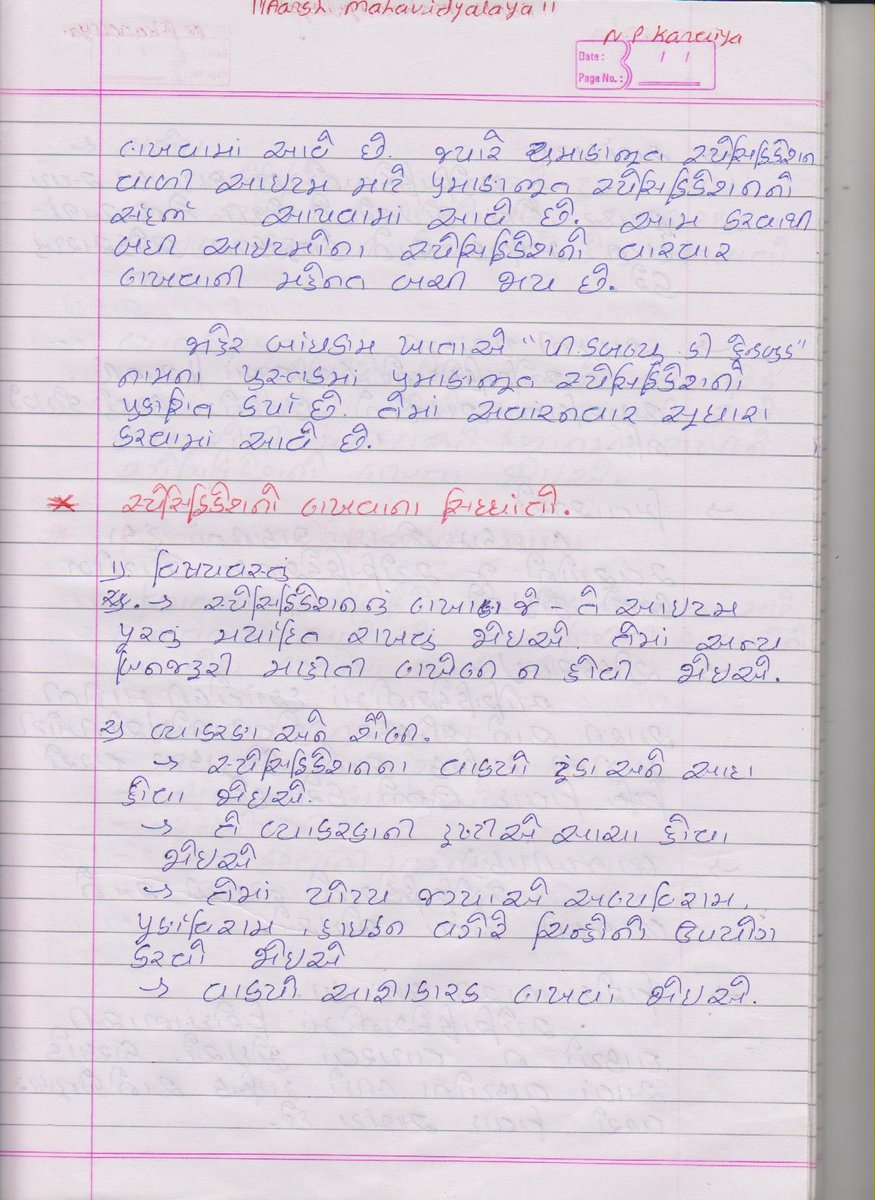 ॥Aarsh mahavidyalaya॥
N.P. Kanaiya
Date : / /
Page No. :
લખવામાં આવે છે. જ્યારે પ્રમાણભૂત સ્પેસિફિકેશન
વાળી આઇટમ માટે પ્રમાણભૂત સ્પેસિફિકેશનનો
સંદર્ભ આપવામાં આવે છે. આમ કરવાથી
બધી આઇટમોના સ્પેસિફિકેશનો વારંવાર
લખવાની મહેનત બચી જાય છે.
જાહેર બાંધકામ ખાતાએ "પી.ડબલ્યુ.ડી હેન્ડબુક"
નામના પુસ્તકમાં પ્રમાણભૂત સ્પેસિફિકેશનો
પ્રકાશિત કર્યા છે. તેમાં અવારનવાર સુધારા
કરવામાં આવે છે.
* સ્પેસિફિકેશનો લખવાના સિધ્ધાંતો.
1). વિષયવસ્તું
→ સ્પેસિફિકેશનનું લખાણ જે - તે આઇટમ
પુરતું મર્યાદિત રાખવું જોઇએ તેમાં અન્ય
બિનજરૂરી માહીતી લખેલ ન હોવી જોઇએ.
૨) વ્યાકરણ અને શૈલી.
→ સ્પેસિફિકેશનના વાક્યો ટુંકા અને સાદા
હોવા જોઇએ.
→ તે વ્યાકરણની દ્રષ્ટીએ સાચા હોવા
જોઇએ
→ તેમાં યોગ્ય જગ્યાએ અલ્પવિરામ,
પુર્ણવિરામ, હાઇફન વગેરે ચિન્હોનો ઉપયોગ
કરવો જોઇએ
→ વાક્યો આજ્ઞાકારક લખવાં જોઇએ.